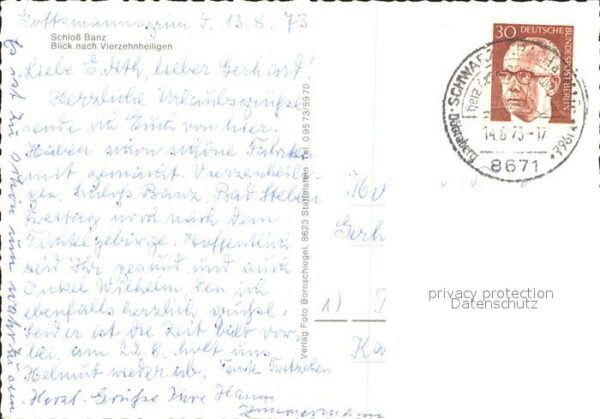 Gottsmannsgrün, d. 13.8.73
Schloß Banz
Blick nach Vierzehnheiligen
Liebe Edith, lieber Gerhard!
Herzliche Urlaubsgrüsse
sende ich Euch von hier.
Haben schon schöne Fahrten
mit gemacht. Vierzenheili-
gen, Schloss Banz, Bad Steben
Freitag noch nach dem
Fichtelgebirge. Hoffentlich
seid Ihr gesund und auch
Onkel Wilhelm den ich
ebenfalls herzlich grüsse.
Leider ist die Zeit bald vor-
bei, am 22.8. holt uns
Helmut wieder ab.
Herzl. Grüsse Ihre Hanni
Zimmermann
Es ist zu schön um wahr zu sein
Verlag Foto Bornschlegel, 8623 Staffelstein Tel. 09573/5970
30 DEUTSCHE
BUNDESPOST BERLIN
14.8.73-17
8671
Gerh
1)
Ka
privacy protection
Datenschutz